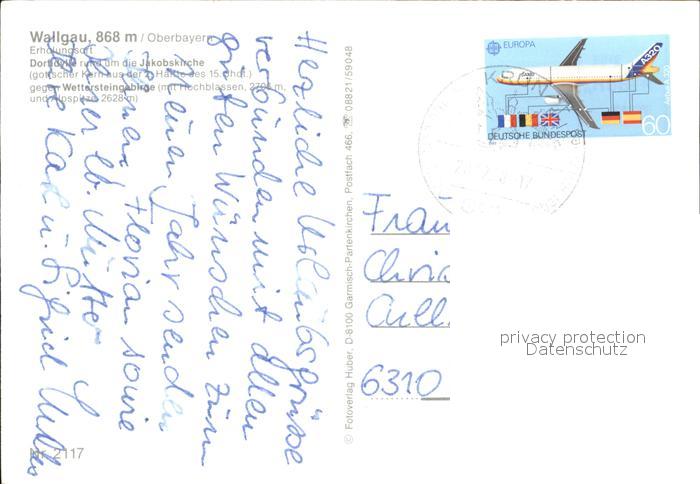 Wallgau, 868 m / Oberbayern
Erholungsort
Dorfidylle rund um die Jakobskirche
(gotischer Kern aus der 2. Hälfte des 15. Jhdt.)
gegen Wettersteingebirge (mit Hochblassen, 2706 m,
und Alpspitze 2628 m)
Herzliche Urlaubsgrüsse
verbunden mit allen
guten Wünschen zum
neuen Jahr senden
Ihnen, Florian sowie
Deiner lb. Mutter
Karl u. Sigrid
Nr. 2117
© Fotoverlag Huber, D-8100 Garmisch-Partenkirchen, Postfach 466, ☎ 08821/59048
EUROPA
A320
DEUTSCHE BUNDESPOST
60
Frau
Chris
6310
privacy protection
Datenschutz